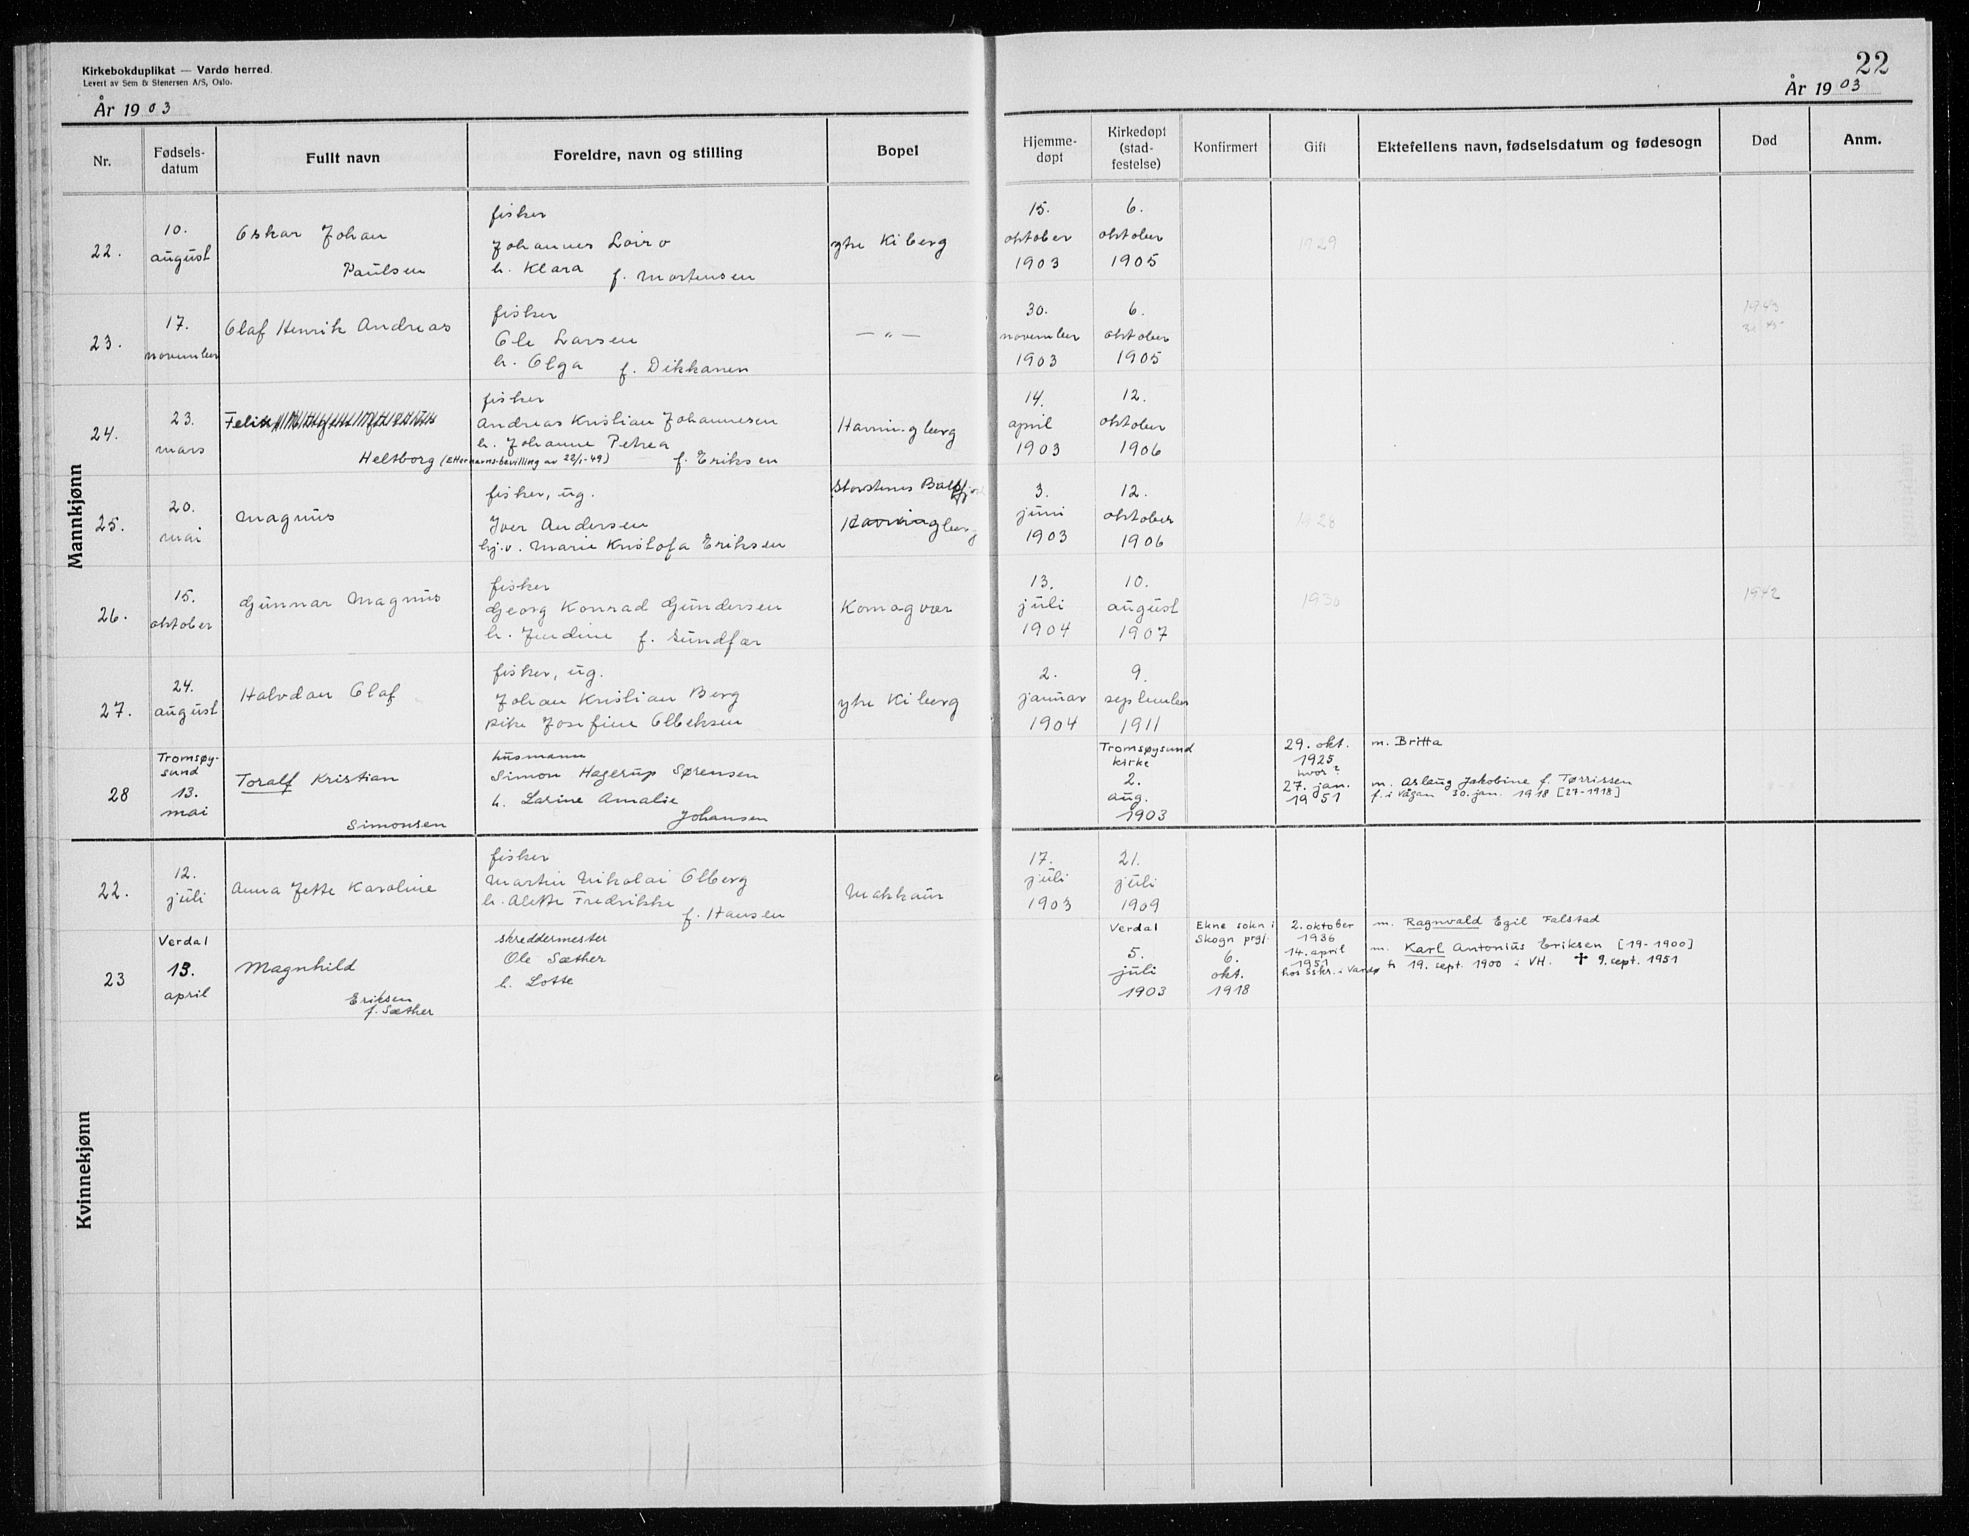 Kirkebokduplikat — Vardø herred.
Levert av Sem & Stenersen A/S, Oslo.
År 1903
22
År 1903
Nr.
Fødsels-
datum
Fullt navn
Foreldre, navn og stilling
Bopel
Hjemme-
døpt
Kirkedøpt
(stad-
festelse)
Konfirmert
Gift
Ektefellens navn, fødselsdatum og fødesogn
Død
Anm.
Mannkjønn
22.
10.
august
Oskar Johan
Paulsen
fisker
Johannes Loiro
h. Klara f. Mortensen
ytre Kiberg
15.
oktober
1903
6.
oktober
1905
1929
23.
17.
november
Olaf Henrik Andreas
fisker
Ole Larsen
h. Olga f. Dikkanen
— „ —
30.
november
1903
6.
oktober
1905
1943
24.
23.
mars
Felix
Heltborg (Etternavns-bevilling av 22/1-49)
fisker
Andreas Kristian Johannesen
h. Johanne Petrea
f. Eriksen
Havningberg
14.
april
1903
12.
oktober
1906
25.
20.
mai
Magnus
fisker, ug.
Iver Andersen
hj.v. Marie Kristofa Eriksen
Storstenes Balsfjord
Havningberg
3.
juni
1903
12.
oktober
1906
1928
26.
15.
oktober
Gunnar Magnus
fisker
Georg Konrad Gundersen
h. Jendine f. Sundfær
Komagvær
13.
juli
1904
10.
august
1907
1930
1942
27.
24.
august
Halvdan Olaf
fisker, ug.
Johan Kristian Berg
pike Josefine Olbeksen
ytre Kiberg
2.
januar
1904
9.
september
1911
28
Tromsøy-
sund
13.
mai
Toralf Kristian
Simonsen
husmann
Simon Hagerup Sørensen
h. Larine Amalie
Johansen
Tromsøysund
kirke
2.
aug.
1903
29. okt.
1925
hvor?
27. jan.
1951
m. Britta
m. Aslaug Jakobine f. Tørrissen
f. i Vågan 30. jan. 1918 [27-1918]
Kvinnekjønn
22.
12.
juli
Anna Jette Karoline
fisker
Martin Nikolai Olberg
h. Alette Fredrikke
f. Hansen
Makkaur
17.
juli
1903
21.
juli
1909
23
Verdal
13.
april
Magnhild
Eriksen
f. Sæther
skreddermester
Ole Sæther
h. Lotte
Verdal
5.
juli
1903
Ekne sokn i
Skogn prgj.
6.
okt.
1918
2. oktober
1936
14. april
1951
hos sskr. i Vardø
m. Ragnvald Egil Falstad
m. Karl Antonius Eriksen [19-1900]
19. sept. 1900 i VH. ✝ 9. sept. 1951